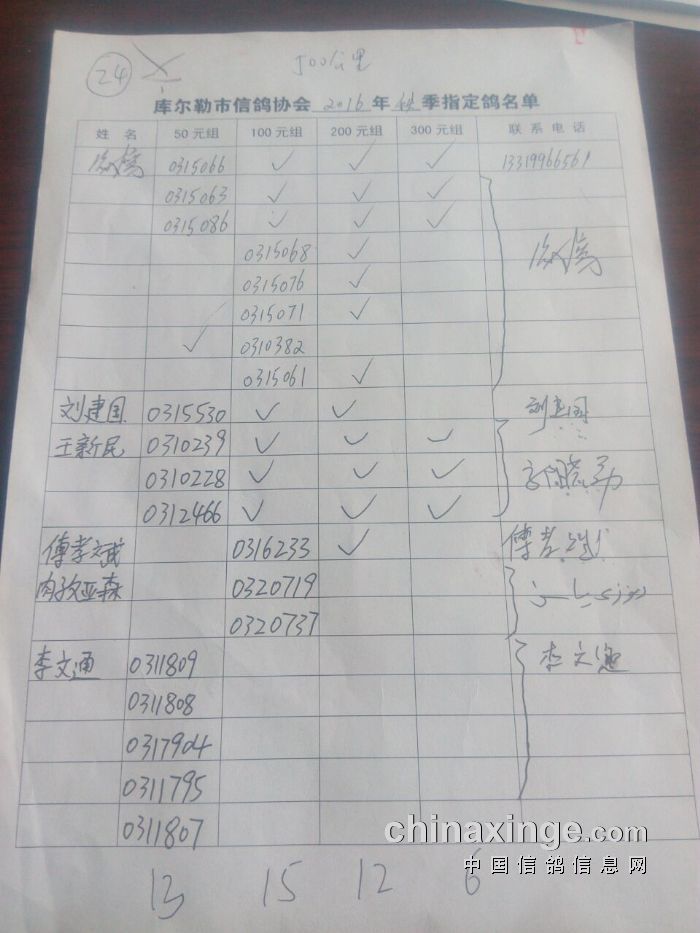 24
500公里
库尔勒市信鸽协会 2016 年 秋 季指定鸽名单
姓 名 50元组 100元组 200元组 300元组 联系电话
0315066 ✓ ✓ ✓ 13319966561
0315063 ✓ ✓ ✓
0315086 ✓ ✓ ✓
0315068 ✓
0315076 ✓
0315071 ✓
✓ 0310382
0315061 ✓
刘建国 0315530 ✓ ✓ 刘建国
王新民 0310239 ✓ ✓ ✓
0310228 ✓ ✓ ✓
0312466 ✓ ✓ ✓
傅孝斌 0316233 ✓ 傅孝斌
肉孜亚森 0320719
0320737
李文通 0311809 李文通
0311808
0317904
0311795
0311807
chinaxinge.com
中国信鸽信息网
13 15 12 6